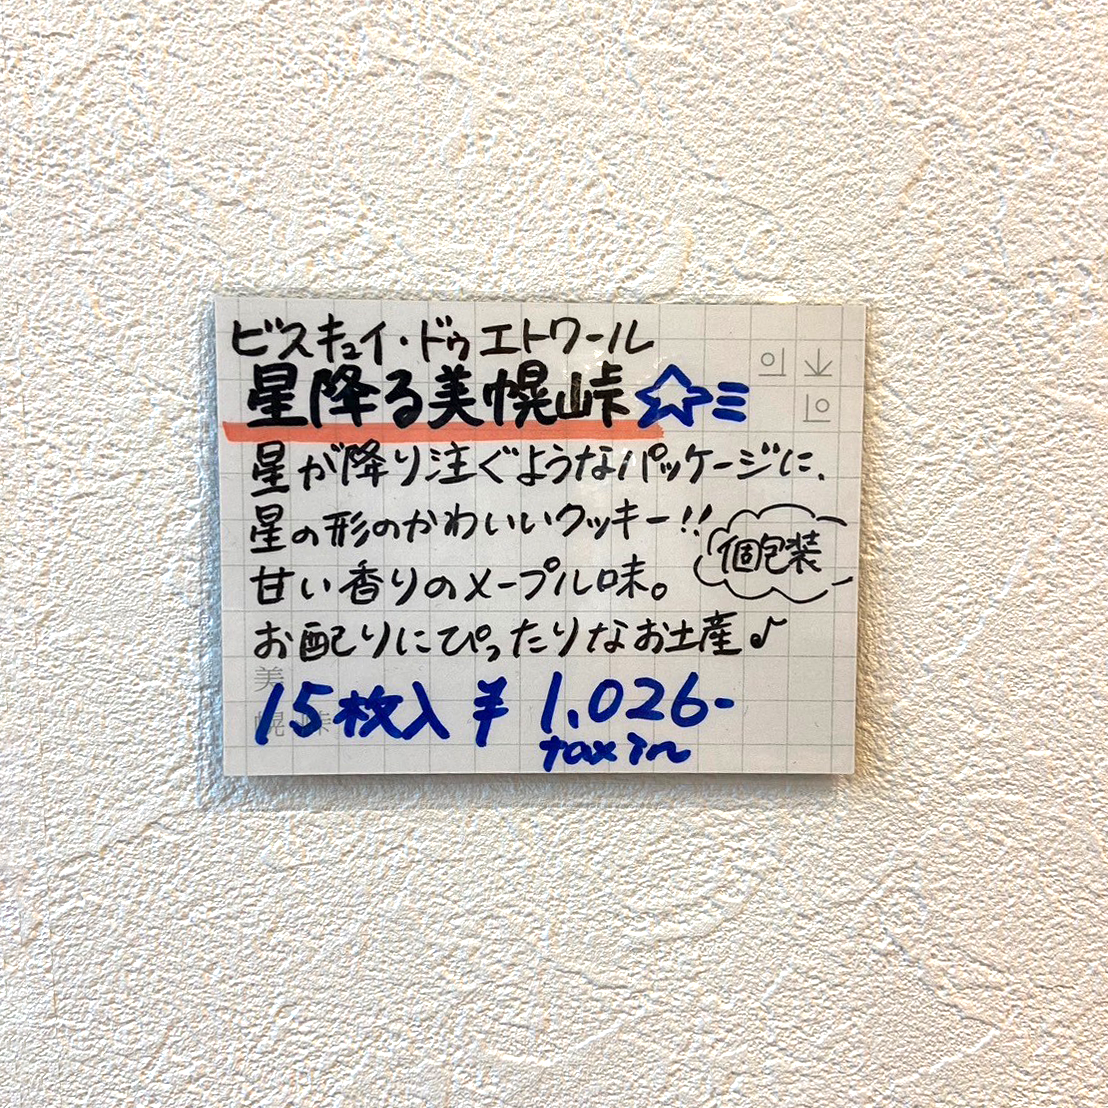 ビスキュイ・ドゥエトワール
星降る美幌峠☆ミ
星が降り注ぐようなパッケージに、
星の形のかわいいクッキー!!
個包装
甘い香りのメープル味。
お配りにぴったりなお土産♪
美
幌 峠
15枚入 ¥1.026-
tax in